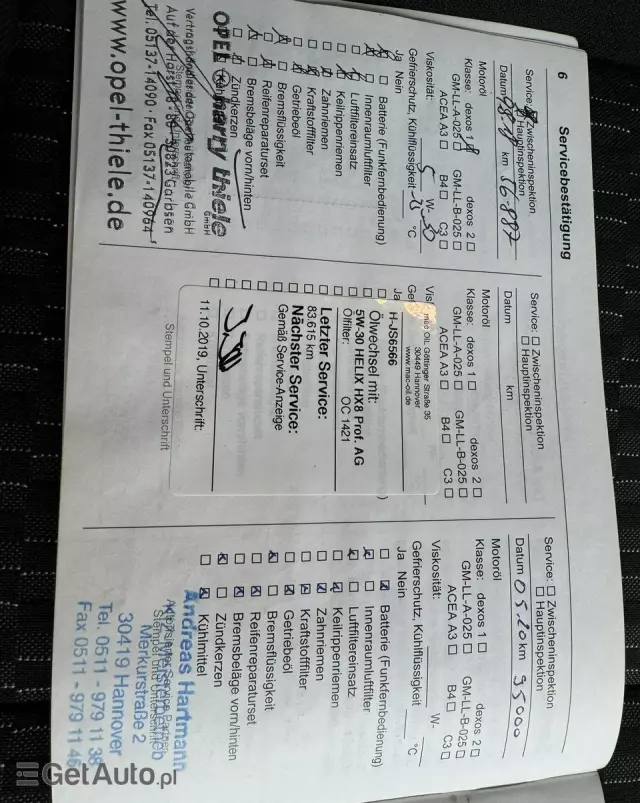 6
Servicebestätigung
Service: Zwischeninspektion
Hauptinspektion
Datum 09.18 km 56-887
Motoröl
Klasse: dexos 1 dexos 2
GM-LL-A-025 GM-LL-B-025
ACEA A3 B4 C3
Viskosität: 5 W- 30
Gefrierschutz, Kühlflüssigkeit °C
Ja Nein
Batterie (Funkfernbedienung)
Innenraumluftfilter
Luftfiltereinsatz
Keilrippenriemen
Zahnriemen
Kraftstofffilter
Getriebeöl
Bremsflüssigkeit
Reifenreparaturset
Bremsbeläge vorn/hinten
Zündkerzen
OPEL harry thiele
GmbH
Vertragshändler der Opel Automobile GmbH
30823 Garbsen
Tel. 05137-14090 · Fax 05137-140964
www.opel-thiele.de
Service: Zwischeninspektion
Hauptinspektion
Datum km
Motoröl
Klasse: dexos 1 dexos 2
GM-LL-A-025 GM-LL-B-025
ACEA A3 B4 C3
OIL Göttinger Straße 35
30449 Hannover
www.mac-oil.de
H-JS6566
Ölwechsel mit:
5W-30 HELIX HX8 Prof. AG
Ölfilter: OC 1421
Letzter Service:
83.615 km
Nächster Service:
Gemäß Service-Anzeige
11.10.2019, Unterschrift:
Stempel und Unterschrift
Service: Zwischeninspektion
Hauptinspektion
Datum 05.20 km 95000
Motoröl
Klasse: dexos 1 dexos 2
GM-LL-A-025 GM-LL-B-025
ACEA A3 B4 C3
Viskosität: W-
Gefrierschutz, Kühlflüssigkeit °C
Ja Nein
Batterie (Funkfernbedienung)
Innenraumluftfilter
Luftfiltereinsatz
Keilrippenriemen
Zahnriemen
Kraftstofffilter
Getriebeöl
Bremsflüssigkeit
Reifenreparaturset
Bremsbeläge vorn/hinten
Zündkerzen
Kühlmittel
Andreas Hartmann
Stempel und Unterschrift
Merkurstraße 2
30419 Hannover
Tel. 0511 - 979 11 38
Fax 0511 - 979 11 46
GetAuto.pl